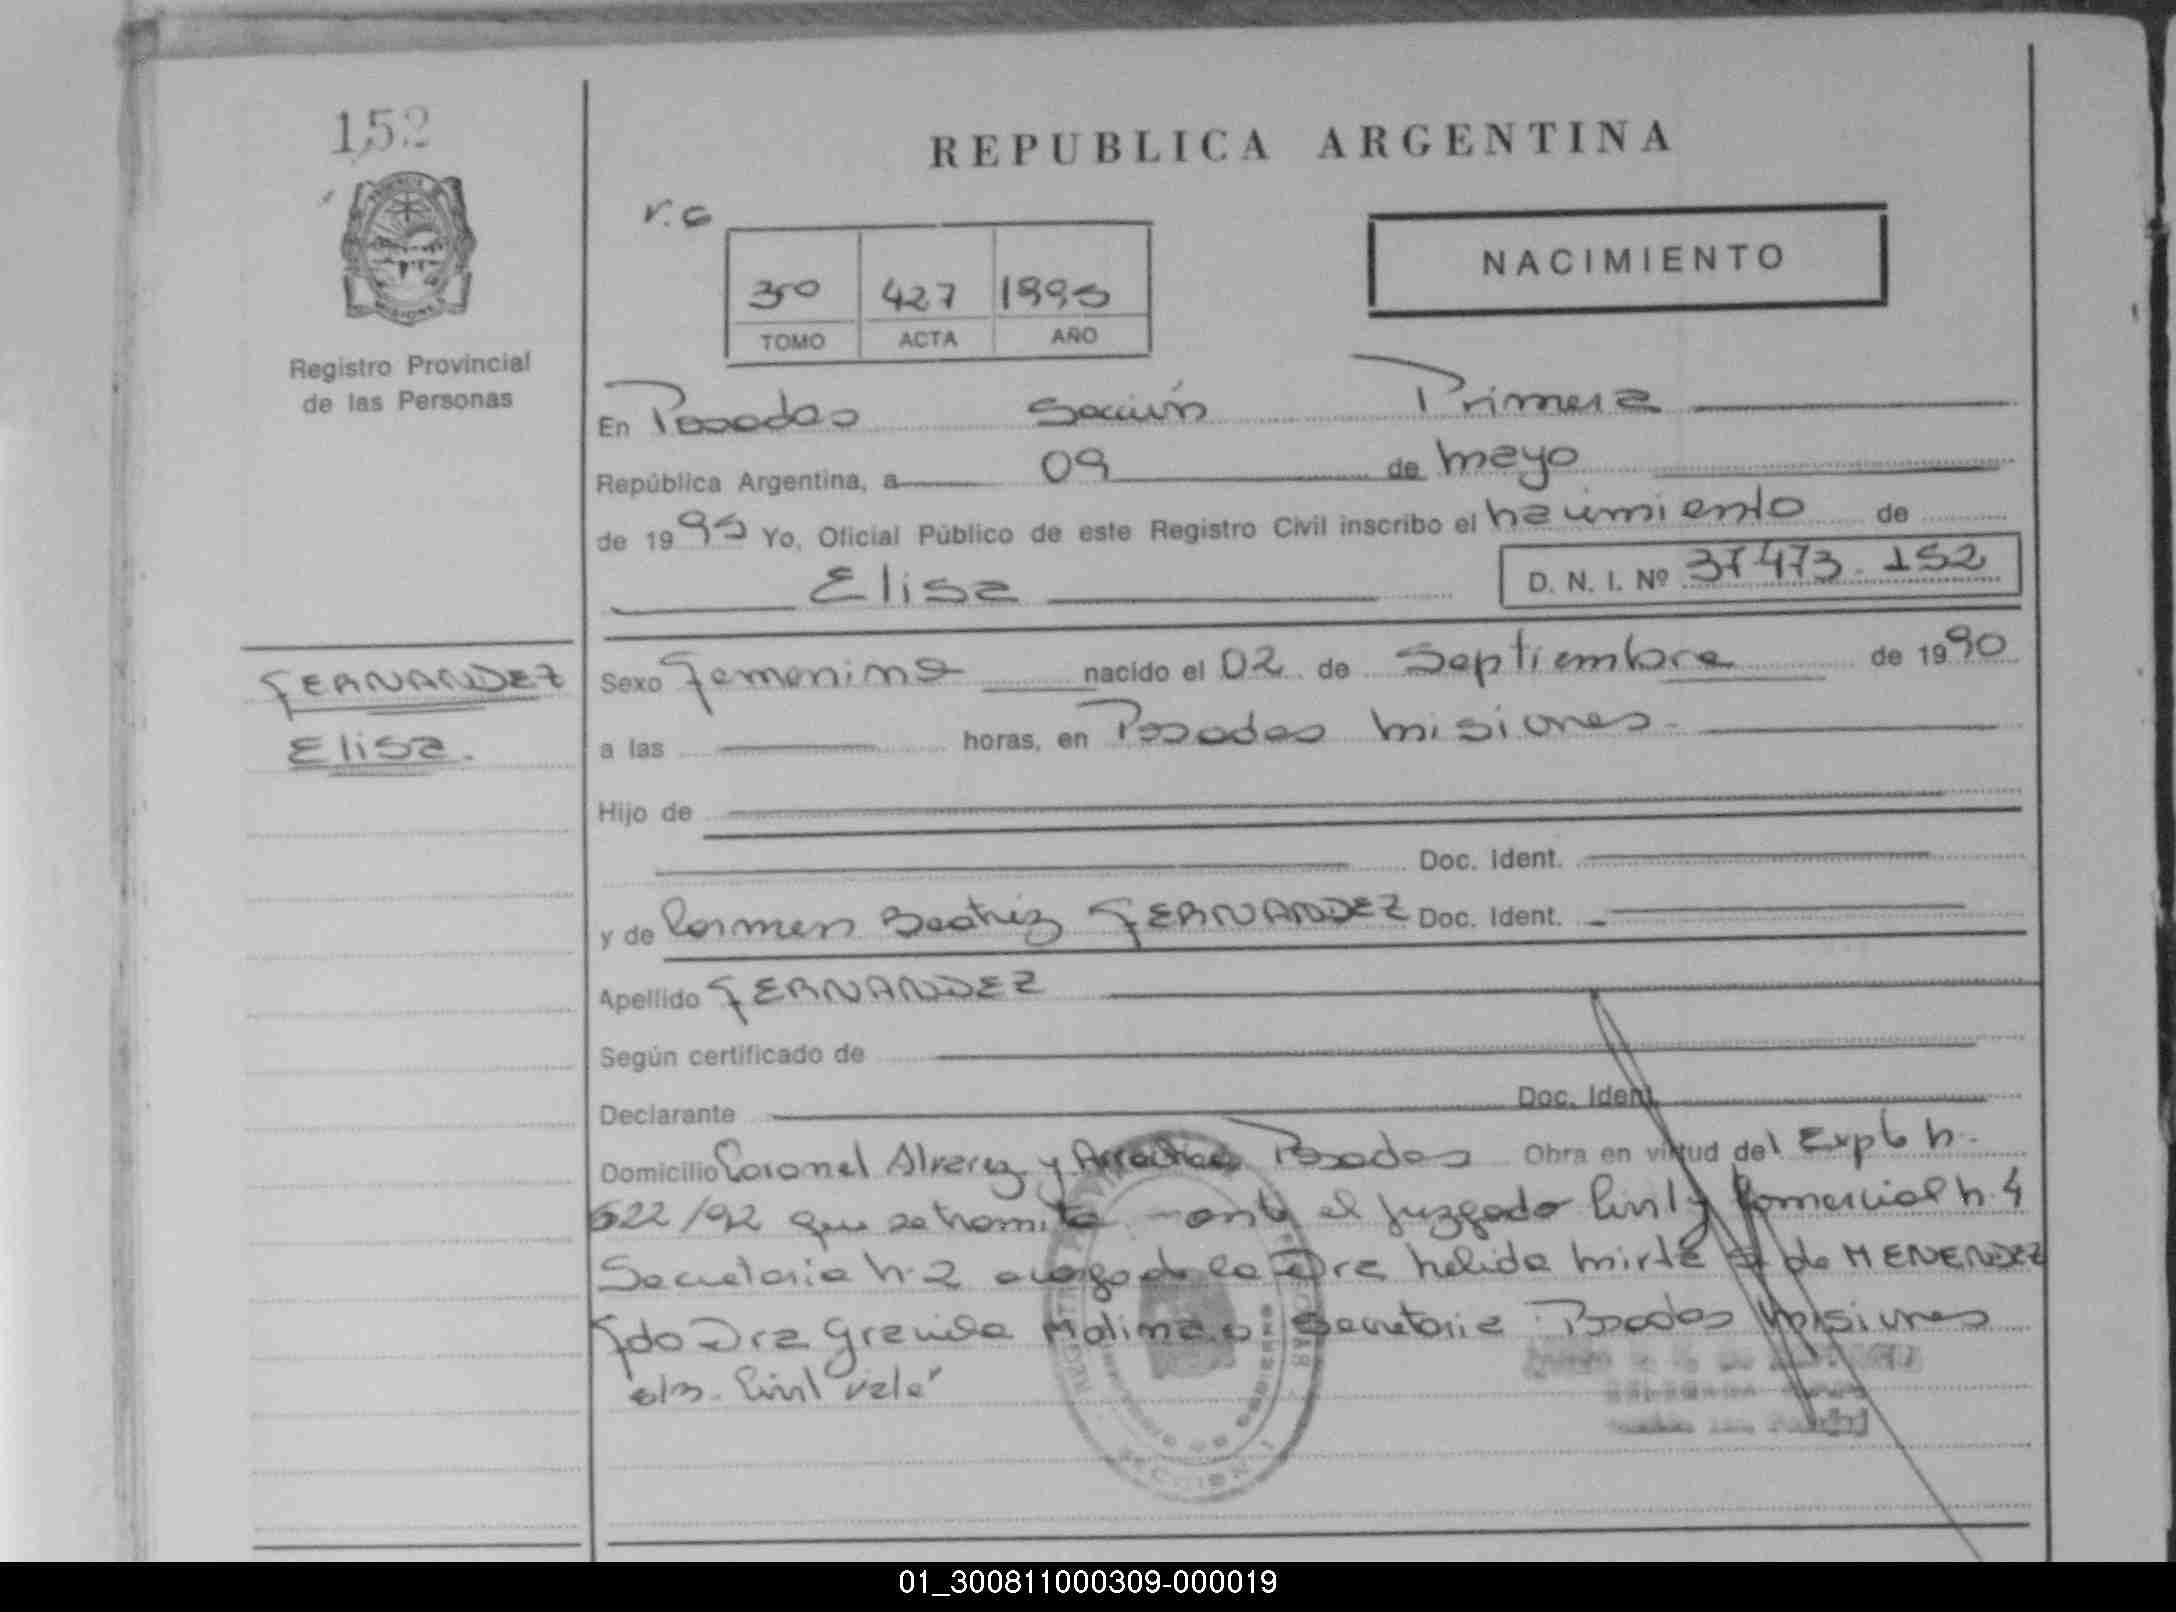 152
REPUBLICA ARGENTINA
NACIMIENTO
r.c
30 427 1995
TOMO ACTA AÑO
Registro Provincial
de las Personas
En Posadas Sección Primera
República Argentina, a 09 de mayo
de 1995 Yo, Oficial Público de este Registro Civil inscribo el nacimiento de
Elisa
D. N. I. Nº 37473.152
FERNANDEZ
Elisa.
Sexo Femenino nacido el 02 de Septiembre de 1990
a las horas, en Posadas Misiones
Hijo de
Doc. Ident.
y de Carmen Beatriz FERNANDEZ Doc. Ident.
Apellido FERNANDEZ
Según certificado de
Declarante Doc. Ident.
Domicilio Coronel Alvarez y Posadas Obra en virtud del Expte n.
622/92 que se tramita ante el Juzgado Civil y Comercial n. 4
Secretaria n.2 a cargo de la Dra Nelida Mirta de MENENDEZ
Fdo Dra Graciela Secretaria Posadas Misiones
Civil vale
SECCION 1
01_300811000309-000019